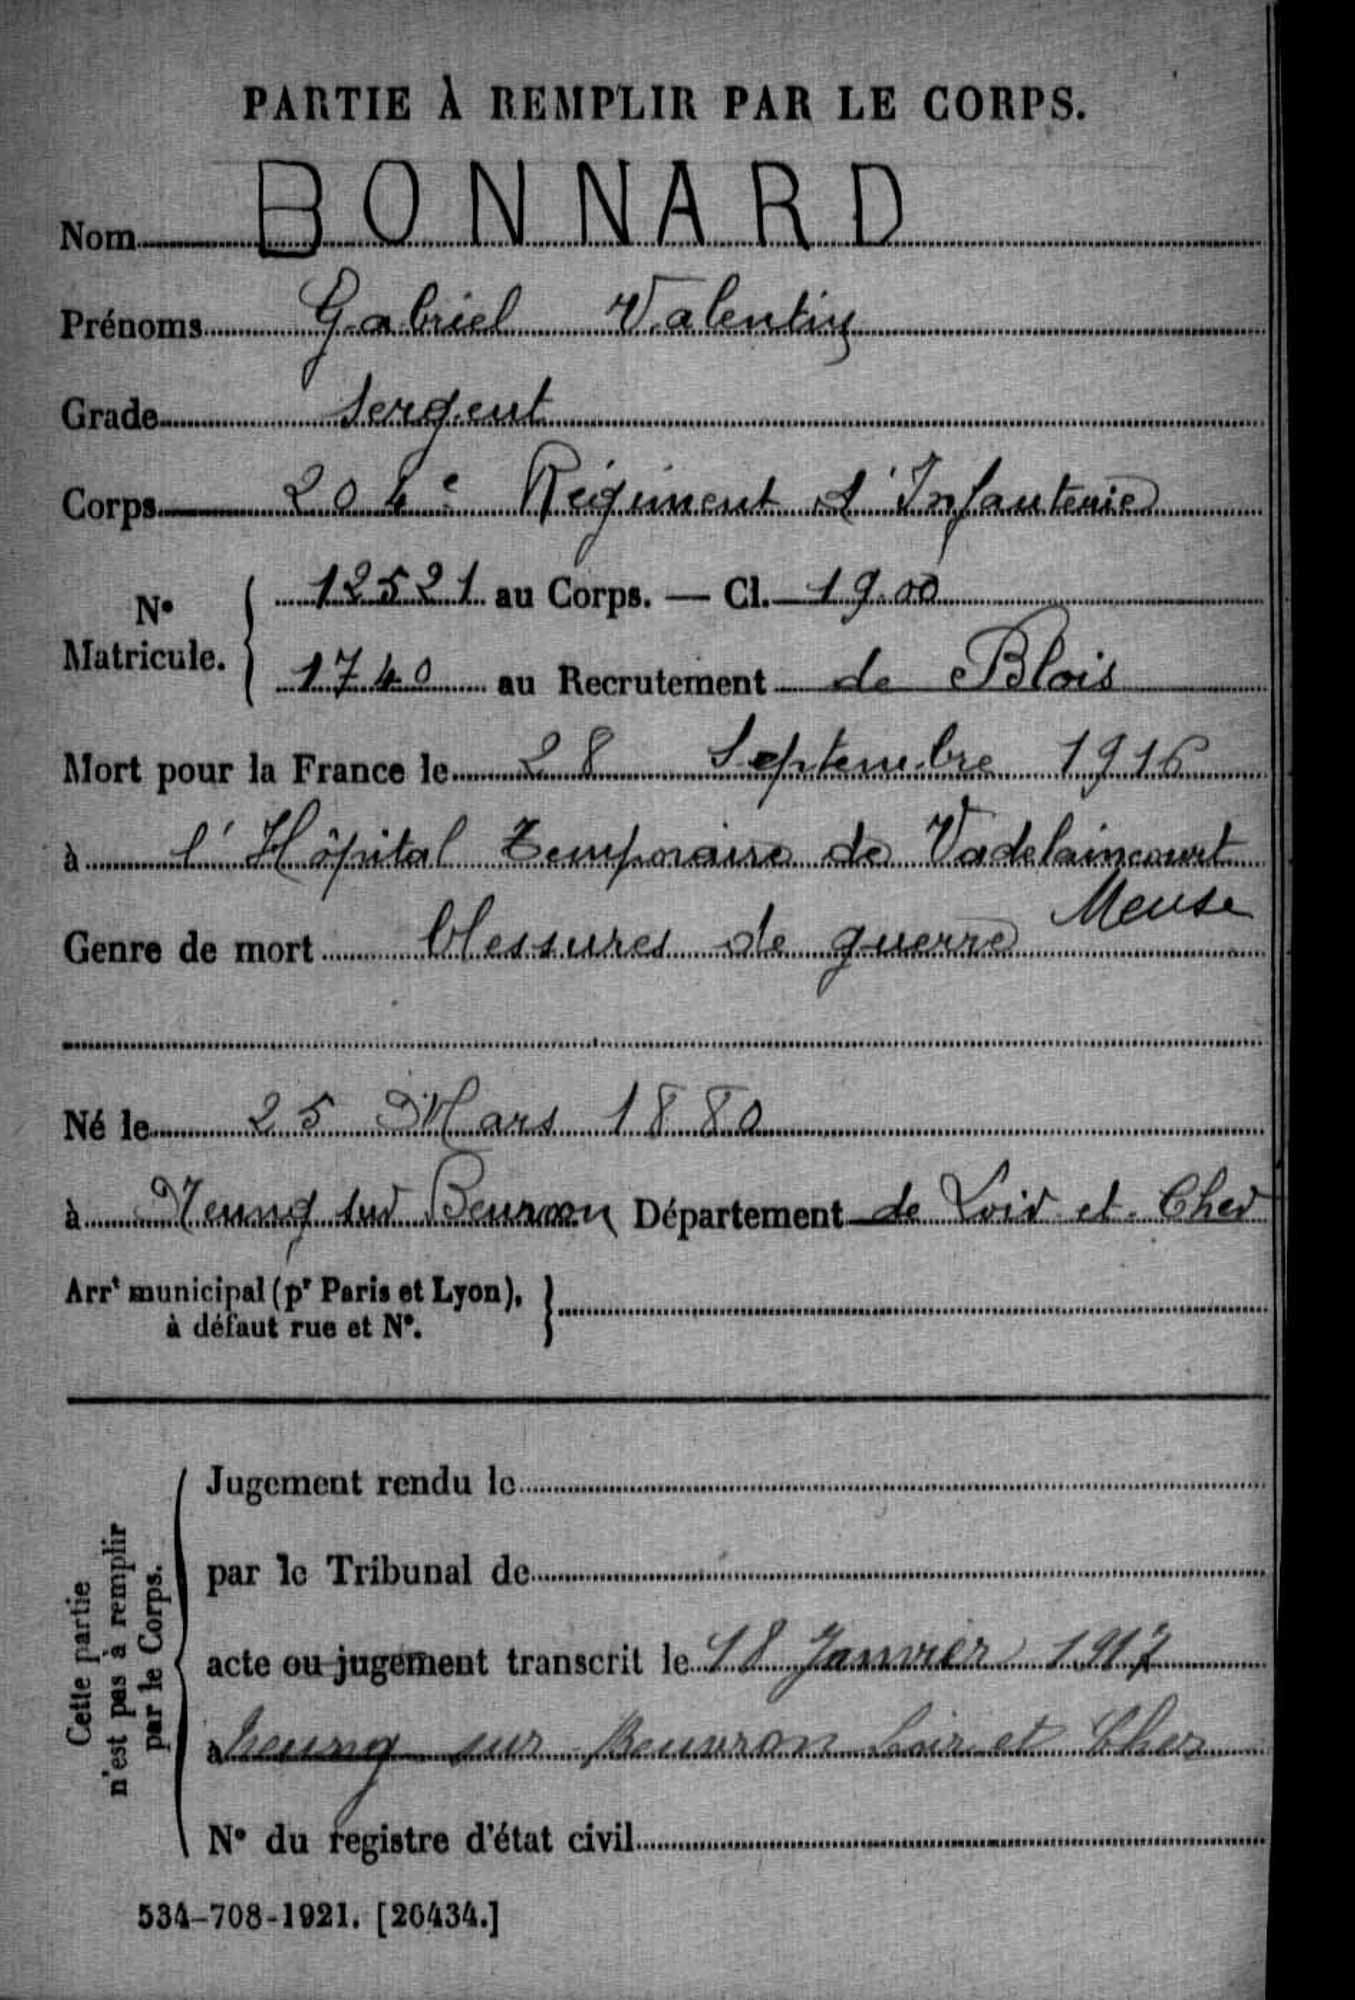 PARTIE À REMPLIR PAR LE CORPS.
Nom BONNARD
Prénoms Gabriel Valentin
Grade Sergent
Corps 204e Régiment d'Infanterie
N° Matricule. { 12521 au Corps. — Cl. 1900
1740 au Recrutement de Blois
Mort pour la France le 28 Septembre 1916
à l'Hôpital Temporaire de Vadelaincourt
Meuse
Genre de mort blessures de guerre
Né le 25 Mars 1880
à Neung sur Beuvron Département de Loir et Cher
Arrt municipal (pr Paris et Lyon),
à défaut rue et N°.
Cette partie
n'est pas à remplir
par le Corps.
Jugement rendu le
par le Tribunal de
acte ou jugement transcrit le 18 Janvier 1917
à Neung sur Beuvron Loir et Cher
N° du registre d'état civil
534-708-1921. [26434.]